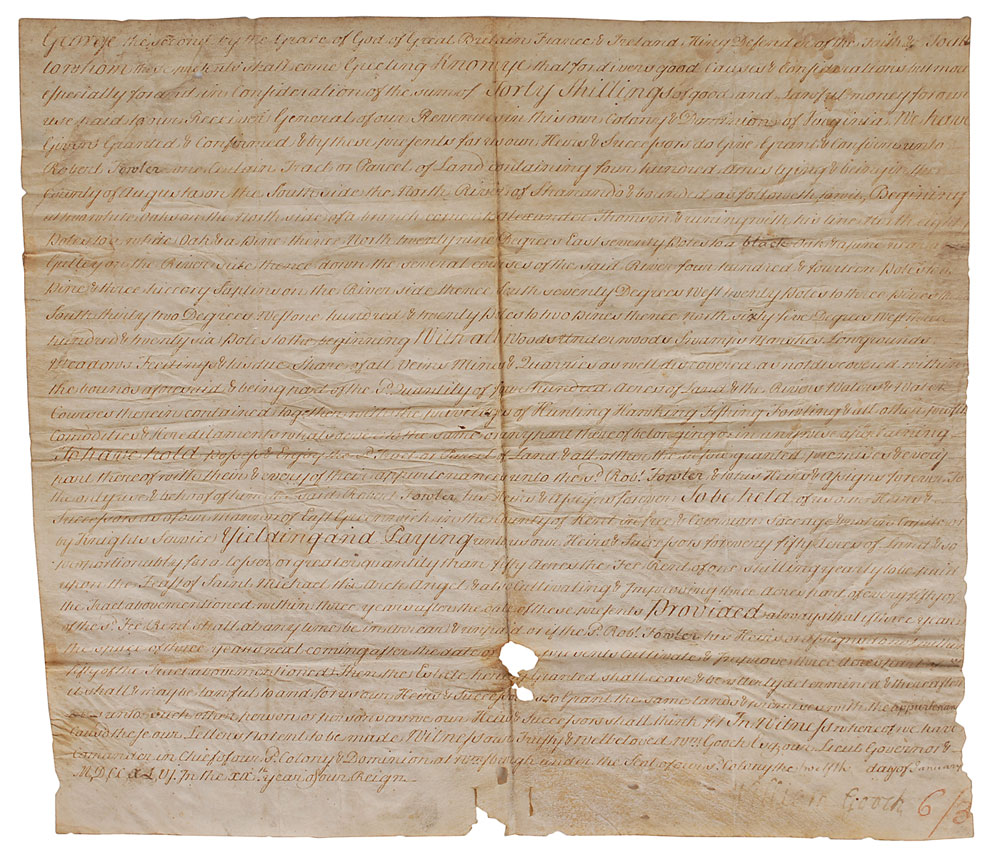 George the Second by the Grace of God of Great Britain France & Ireland King Defender of the Faith &c To all
to whom these presents shall come Greeting Know ye that for divers good Causes & Considerations but more
Especially for and in Consideration of the sum of Forty Shillings of good and Lawful money for our
use paid to our Receiver General of our Revenues in this our Colony & Dominion of Virginia We have
Given Granted & Confirmed & by these presents for us our Heirs & Successors do Give Grant & Confirm unto
Robert Fowler one Certain Tract or Parcel of Land containing four hundred Acres lying & being in the
County of Augusta on the South side the North River of & bounded as followeth to wit Begining
at two white Oaks on the north side of a branch corner to Alexander Thomson & runing with his line North eight
Poles to a white Oak & a Pine thence North twenty nine Degrees East seventy Poles to a black Oak & a pine in a
Gulley on the River side thence down the several courses of the said River four hundred & fourteen Poles to a
Pine & three Saplins on the River side thence South seventy Degrees West twenty Poles to three pines
South thirty two Degrees West one hundred & twenty Poles to two Pines thence north sixty five Degrees West three
hundred & twenty six Poles to the beginning With all Woods Underwoods Swamps Marshes Lowgrounds
Meadows Feedings & his due Share of all Veins Mines & Quarries as well discovered as not discovered within
the bounds aforesaid & being part of the Sd. Quantity of four hundred Acres of Land & the Rivers Waters & Water
Courses therein contained together with the priviledges of Hunting Hawking Fishing Fowling & all other profits
Comodities & Hereditaments whatsoever to the same or any part thereof belonging or in any wise appertaining
To have hold possess & Enjoy the Sd. Tract or Parcel of Land & all other the before granted premises & every
part thereof with their & every of their appurtenances unto the Sd. Robt. Fowler & to his Heirs & Assigns forever To
the only use & behoof of him the said Robert Fowler his Heirs & Assigns forever To be held of us our Heirs &
Successors as of our Mannor of East Greenwich in the County of Kent in free & Common Soccage & not in Capite or
by Knights Service Yielding and Paying unto us our Heirs & Successors for every fifty Acres of Land & so
proportionably for a lesser or greater quantity than fifty Acres the Fee Rent of one shilling yearly to be paid
upon the Feast of Saint Michael the Arch Angel & also Cultivating & Improving three Acres part of every fifty of
the Tract abovementioned within three years after the date of these presents Provided always that if three years
of the Sd. Fee Rent shall at any time be in arrear & unpaid or if the Sd. Robt. Fowler his Heirs or Assigns do not within
the space of three years next coming after the date of presents Cultivate & Improve three Acres part of
fifty of the Tract abovementioned Then the Estate hereby Granted shall cease & be utterly determined & thereafter
it shall & may be lawful to and for us our Heirs & Successors to Grant the same Lands & premises with the appurtenan
ces unto such other person or persons as we our Heirs & Successors shall think fit In Witness whereof we have
caused these our Letters Patent to be made Witness our Trusty & Welbeloved Wm. Gooch Esq. our Lieut Governor &
Comander in Chief of our Sd. Colony & Dominion at Wmsburgh under the Seal of our Sd. Colony the twelfth day of January
MDCCXLVI. In the XXth. year of our Reign
Gooch 6/3